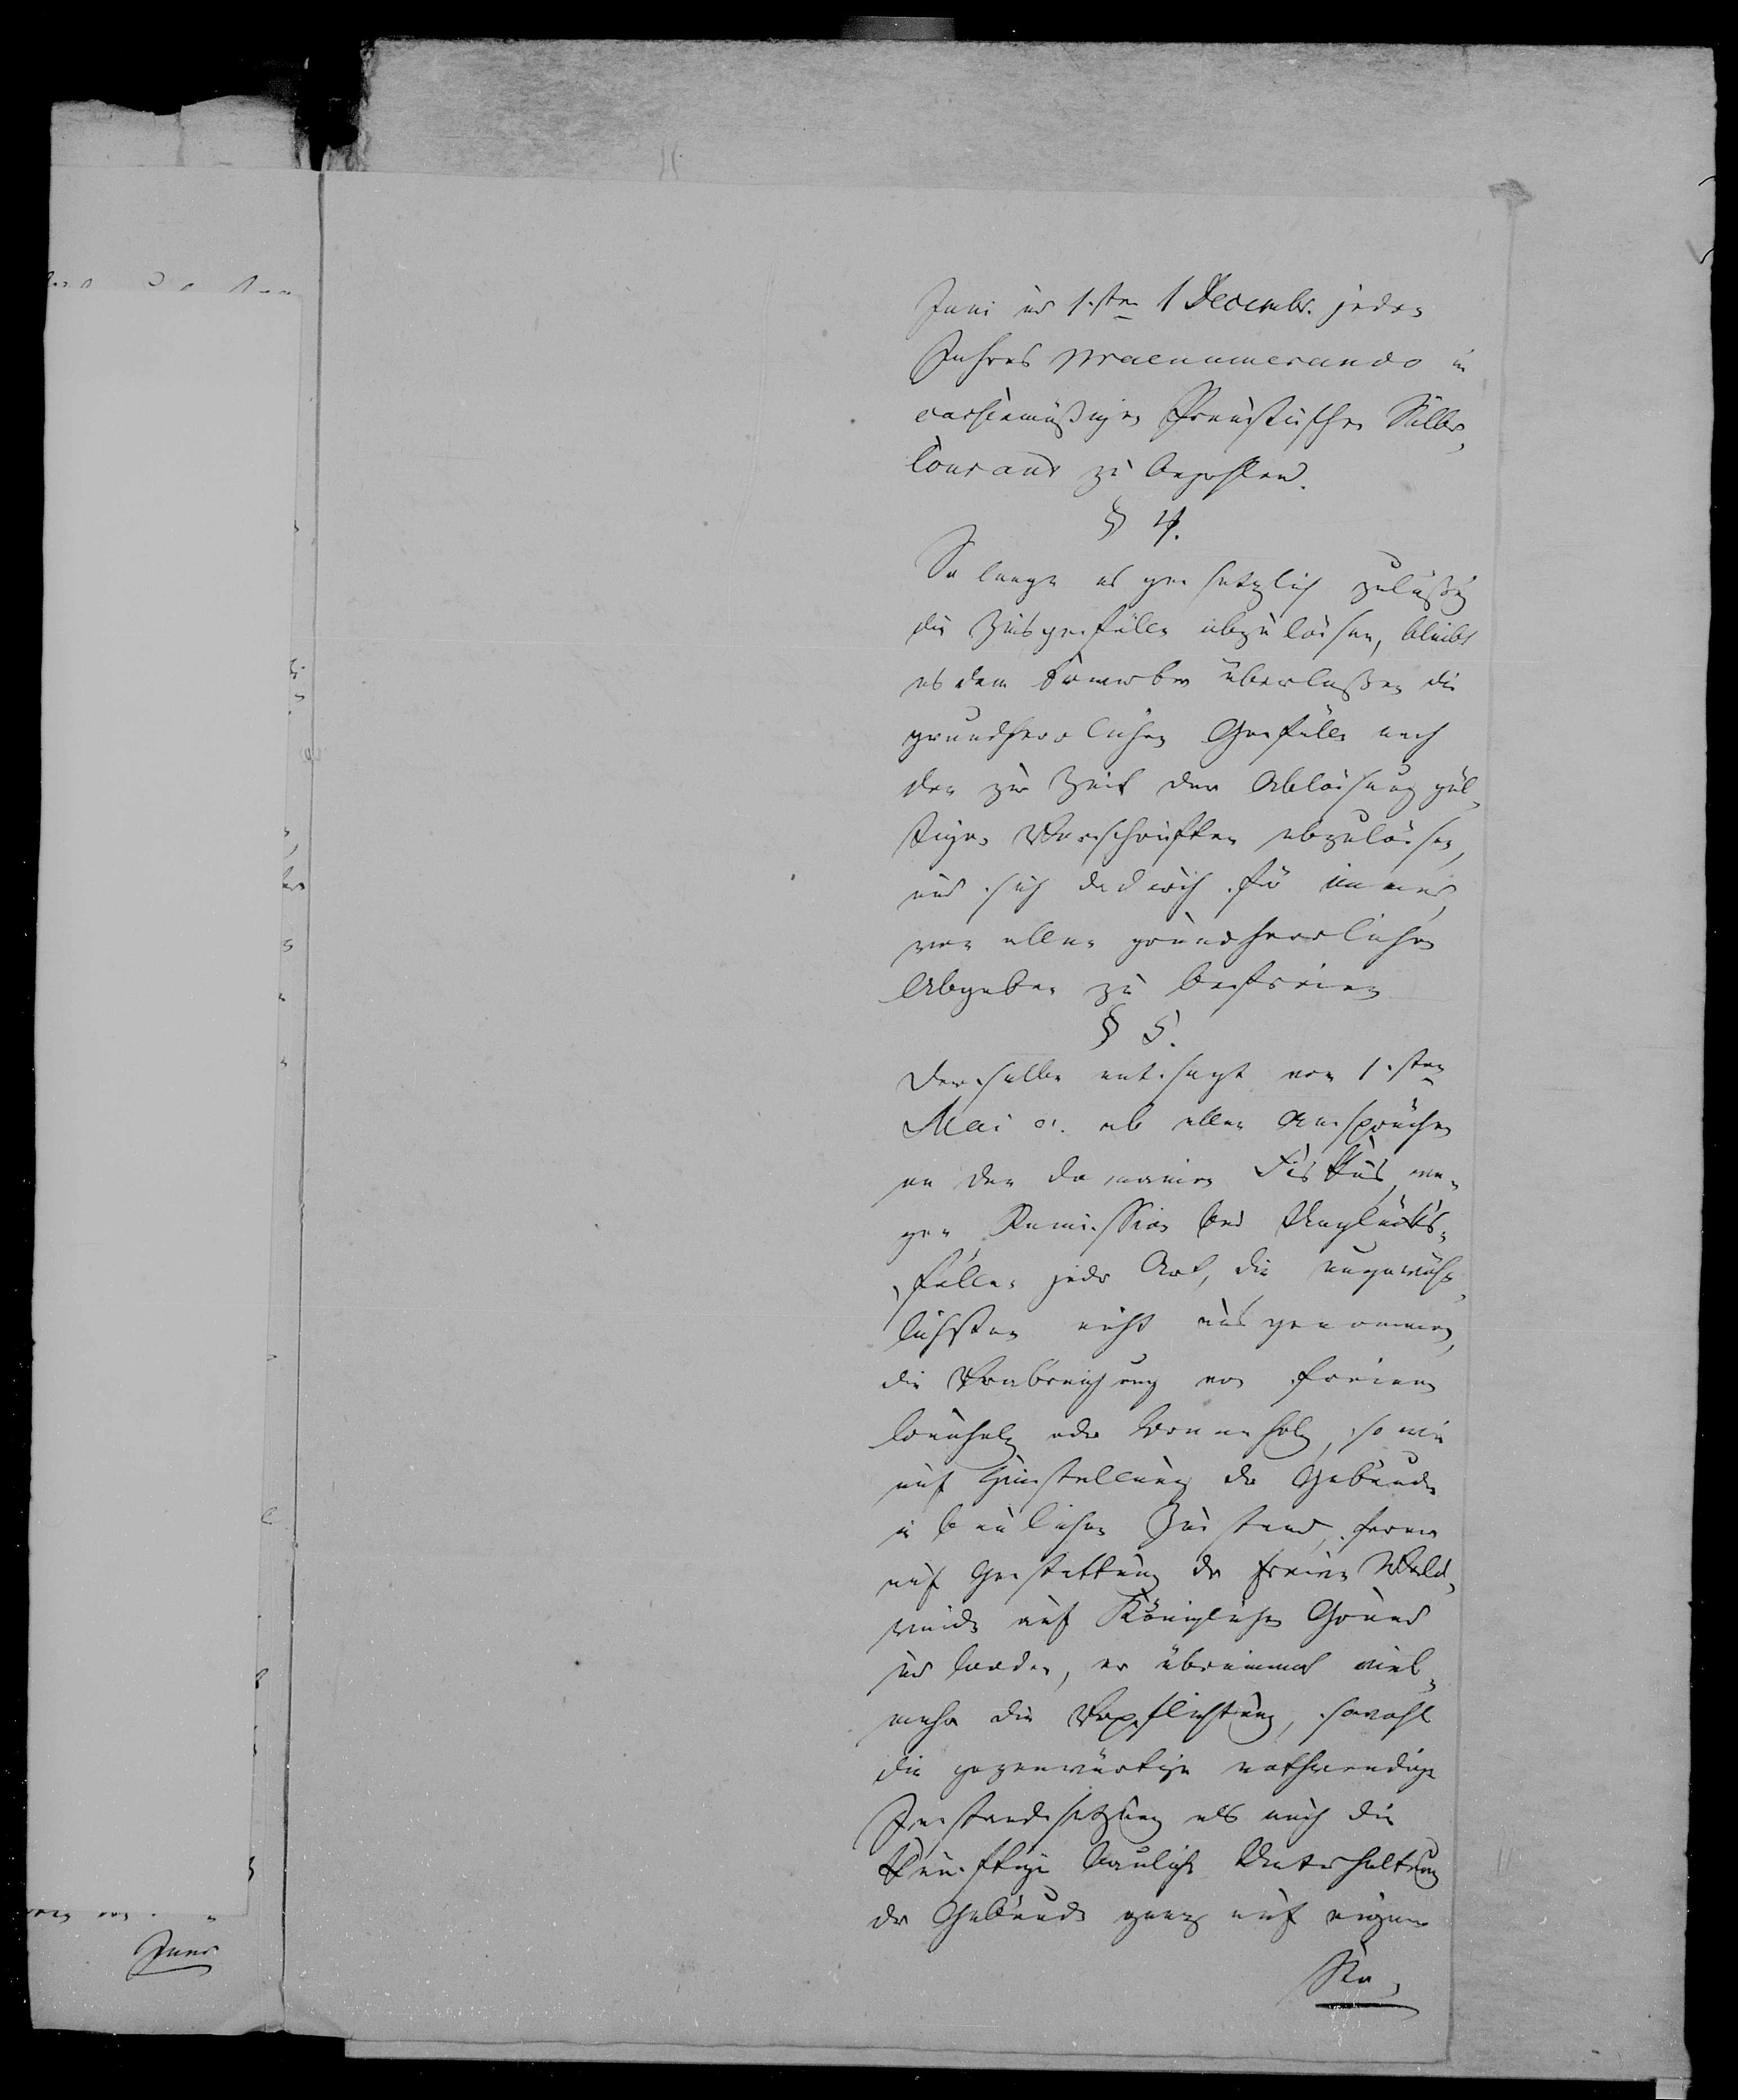 Juni und 1sten Decembr. jeden
Jahres praenumerando in
cassenmäßigen Preußischen Silber-
Courant zu bezahlen.
§ 4.
So lange es gesetzlich zuläßig
die Zinsgefälle abzulösen, bleibt
es dem Erwerber überlaßen die
grundherrlichen Gefälle nach
den zur Zeit der Ablösung gül-
tigen Vorschriften abzulösen,
und sich dadurch für immer
von allen grundherrlichen
Abgaben zu befreien
§ 5.
Derselbe entsagt vom 1sten
Mai c. ab allen Ansprüchen
an den Domainen Fiskus we-
gen Remission bei Unglücks-
fällen jeder Art, die ungewöhn-
lichsten nicht ausgenommen,
die Verabreichung von freiem
Bauholz oder Brennholz, so wie
auf Herstellung der Gebäude
in baulichen Zustand, ferner
auf Gestattung der freien Wald-
weide auf Königlichen Grund
und Boden, er übernimmt viel-
mehr die Verpflichtung, sowohl
die gegenwärtige nothwendige
Instandsetzung als auch die
künftige bauliche Unterhaltung
der Gebäude ganz auf eigene
Ko-